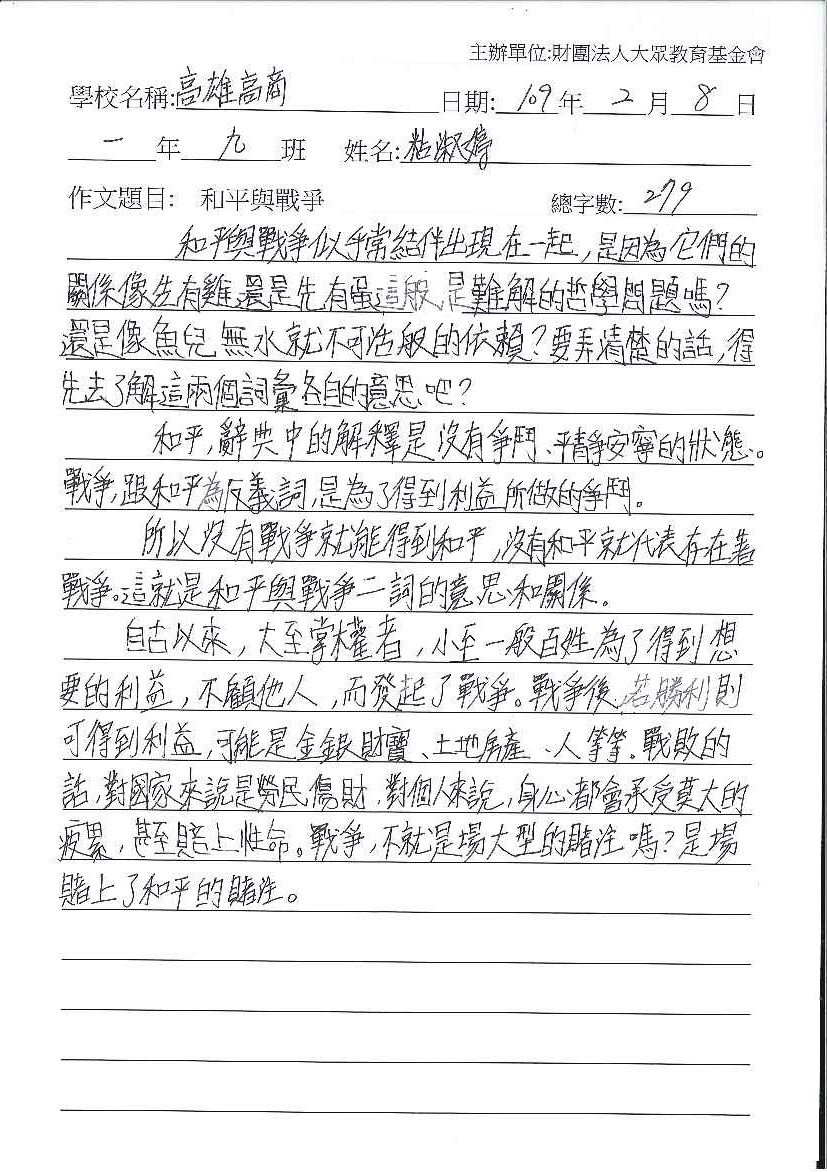 主辦單位:財團法人大眾教育基金會
學校名稱:高雄高商 日期: 109年 2 月 8 日
一 年 九 班 姓名:粘淑婷
作文題目: 和平與戰爭 總字數: 279
和平與戰爭似乎常結伴出現在一起,是因為它們的
關係像先有雞還是先有蛋這般是難解的哲學問題嗎?
還是像魚兒無水就不可活般的依賴?要弄清楚的話,得
先去了解這兩個詞彙各自的意思吧?
和平,辭典中的解釋是沒有爭鬥、平靜安寧的狀態。
戰爭,跟和平為反義詞,是為了得到利益所做的爭鬥。
所以沒有戰爭就能得到和平,沒有和平就代表存在著
戰爭。這就是和平與戰爭二詞的意思和關係。
自古以來,大至掌權者,小至一般百姓為了得到想
要的利益,不顧他人,而發起了戰爭。戰爭後,若勝利則
可得到利益,可能是金銀財寶、土地房產、人等等。戰敗的
話,對國家來說是勞民傷財,對個人來說,身心都會承受莫大的
疲累,甚至賠上性命。戰爭,不就是場大型的賭注嗎?是場
賭上了和平的賭注。